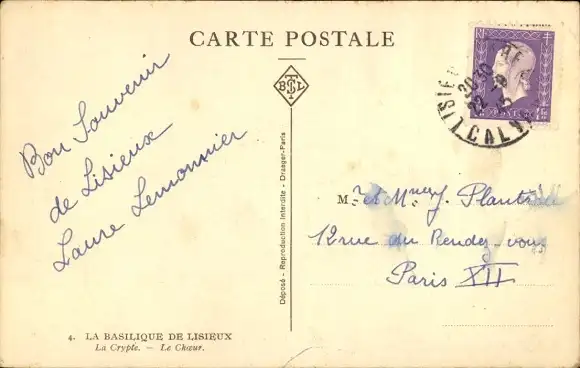 CARTE POSTALE
BSTL
Bon Souvenir
de Lisieux
Laure Lemonnier
Déposé - Reproduction Interdite - Draeger-Paris
RF
POSTES
LISIEUX
20 30
22 -9
CALV
M. et Mme J. Plantade
12 rue du Rendez-vous
Paris XII
4. LA BASILIQUE DE LISIEUX
La Crypte. — Le Chœur.